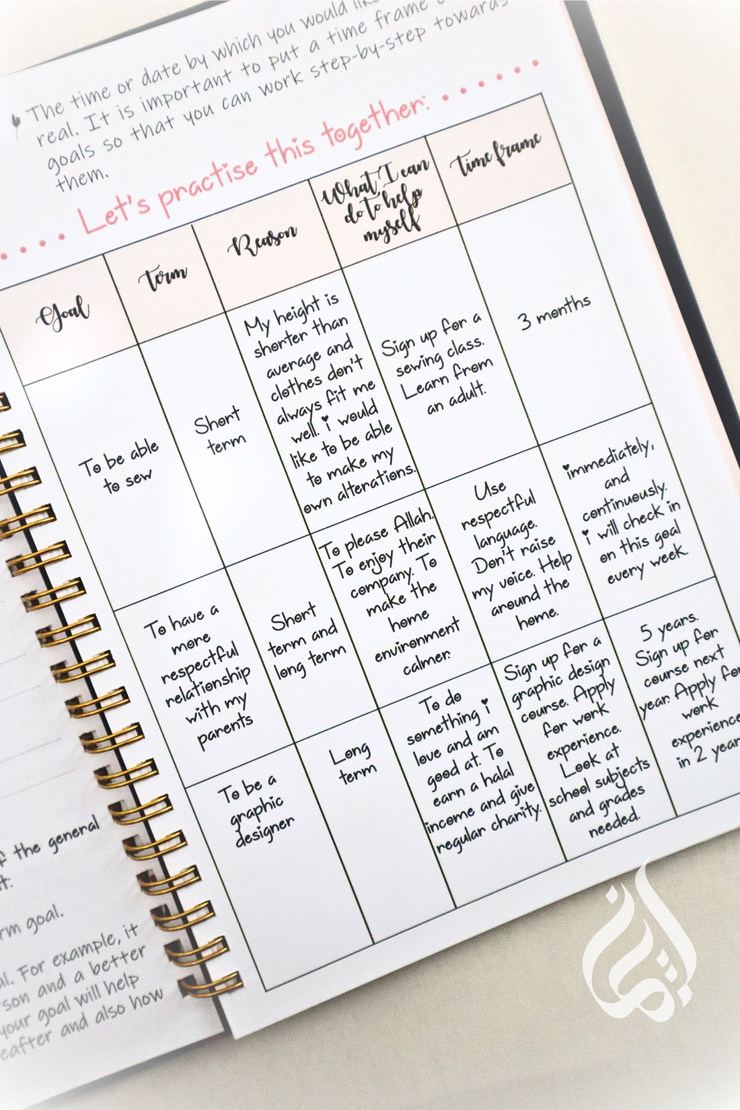 The time or date by which you would
real. It is important to put a time frame
goals so that you can work step-by-step towards
them.
Let's practise this together:
Goal
term
Reason
What I can
do to help
myself
Time frame
To be able
to sew
Short
term
My height is
shorter than
average and
clothes don't
always fit me
well. i would
like to be able
to make my
own alterations.
Sign up for a
sewing class.
Learn from
an adult.
3 months
To have a
more
respectful
relationship
with my
parents
Short
term and
long term
To please Allah.
To enjoy their
company. To
make the
home
environment
calmer.
Use
respectful
language.
Don't raise
my voice. Help
around the
home.
immediately,
and
continuously.
i will check in
on this goal
every week.
To be a
graphic
designer
Long
term
To do
something i
love and am
good at. To
earn a halal
income and give
regular charity.
Sign up for a
graphic design
course. Apply
for work
experience.
Look at
school subjects
and grades
needed.
5 years.
Sign up for
course next
year. Apply for
work
experience
in 2 year
the general
t:
rm goal.
al. For example, it
son and a better
your goal will help
eafter and also how